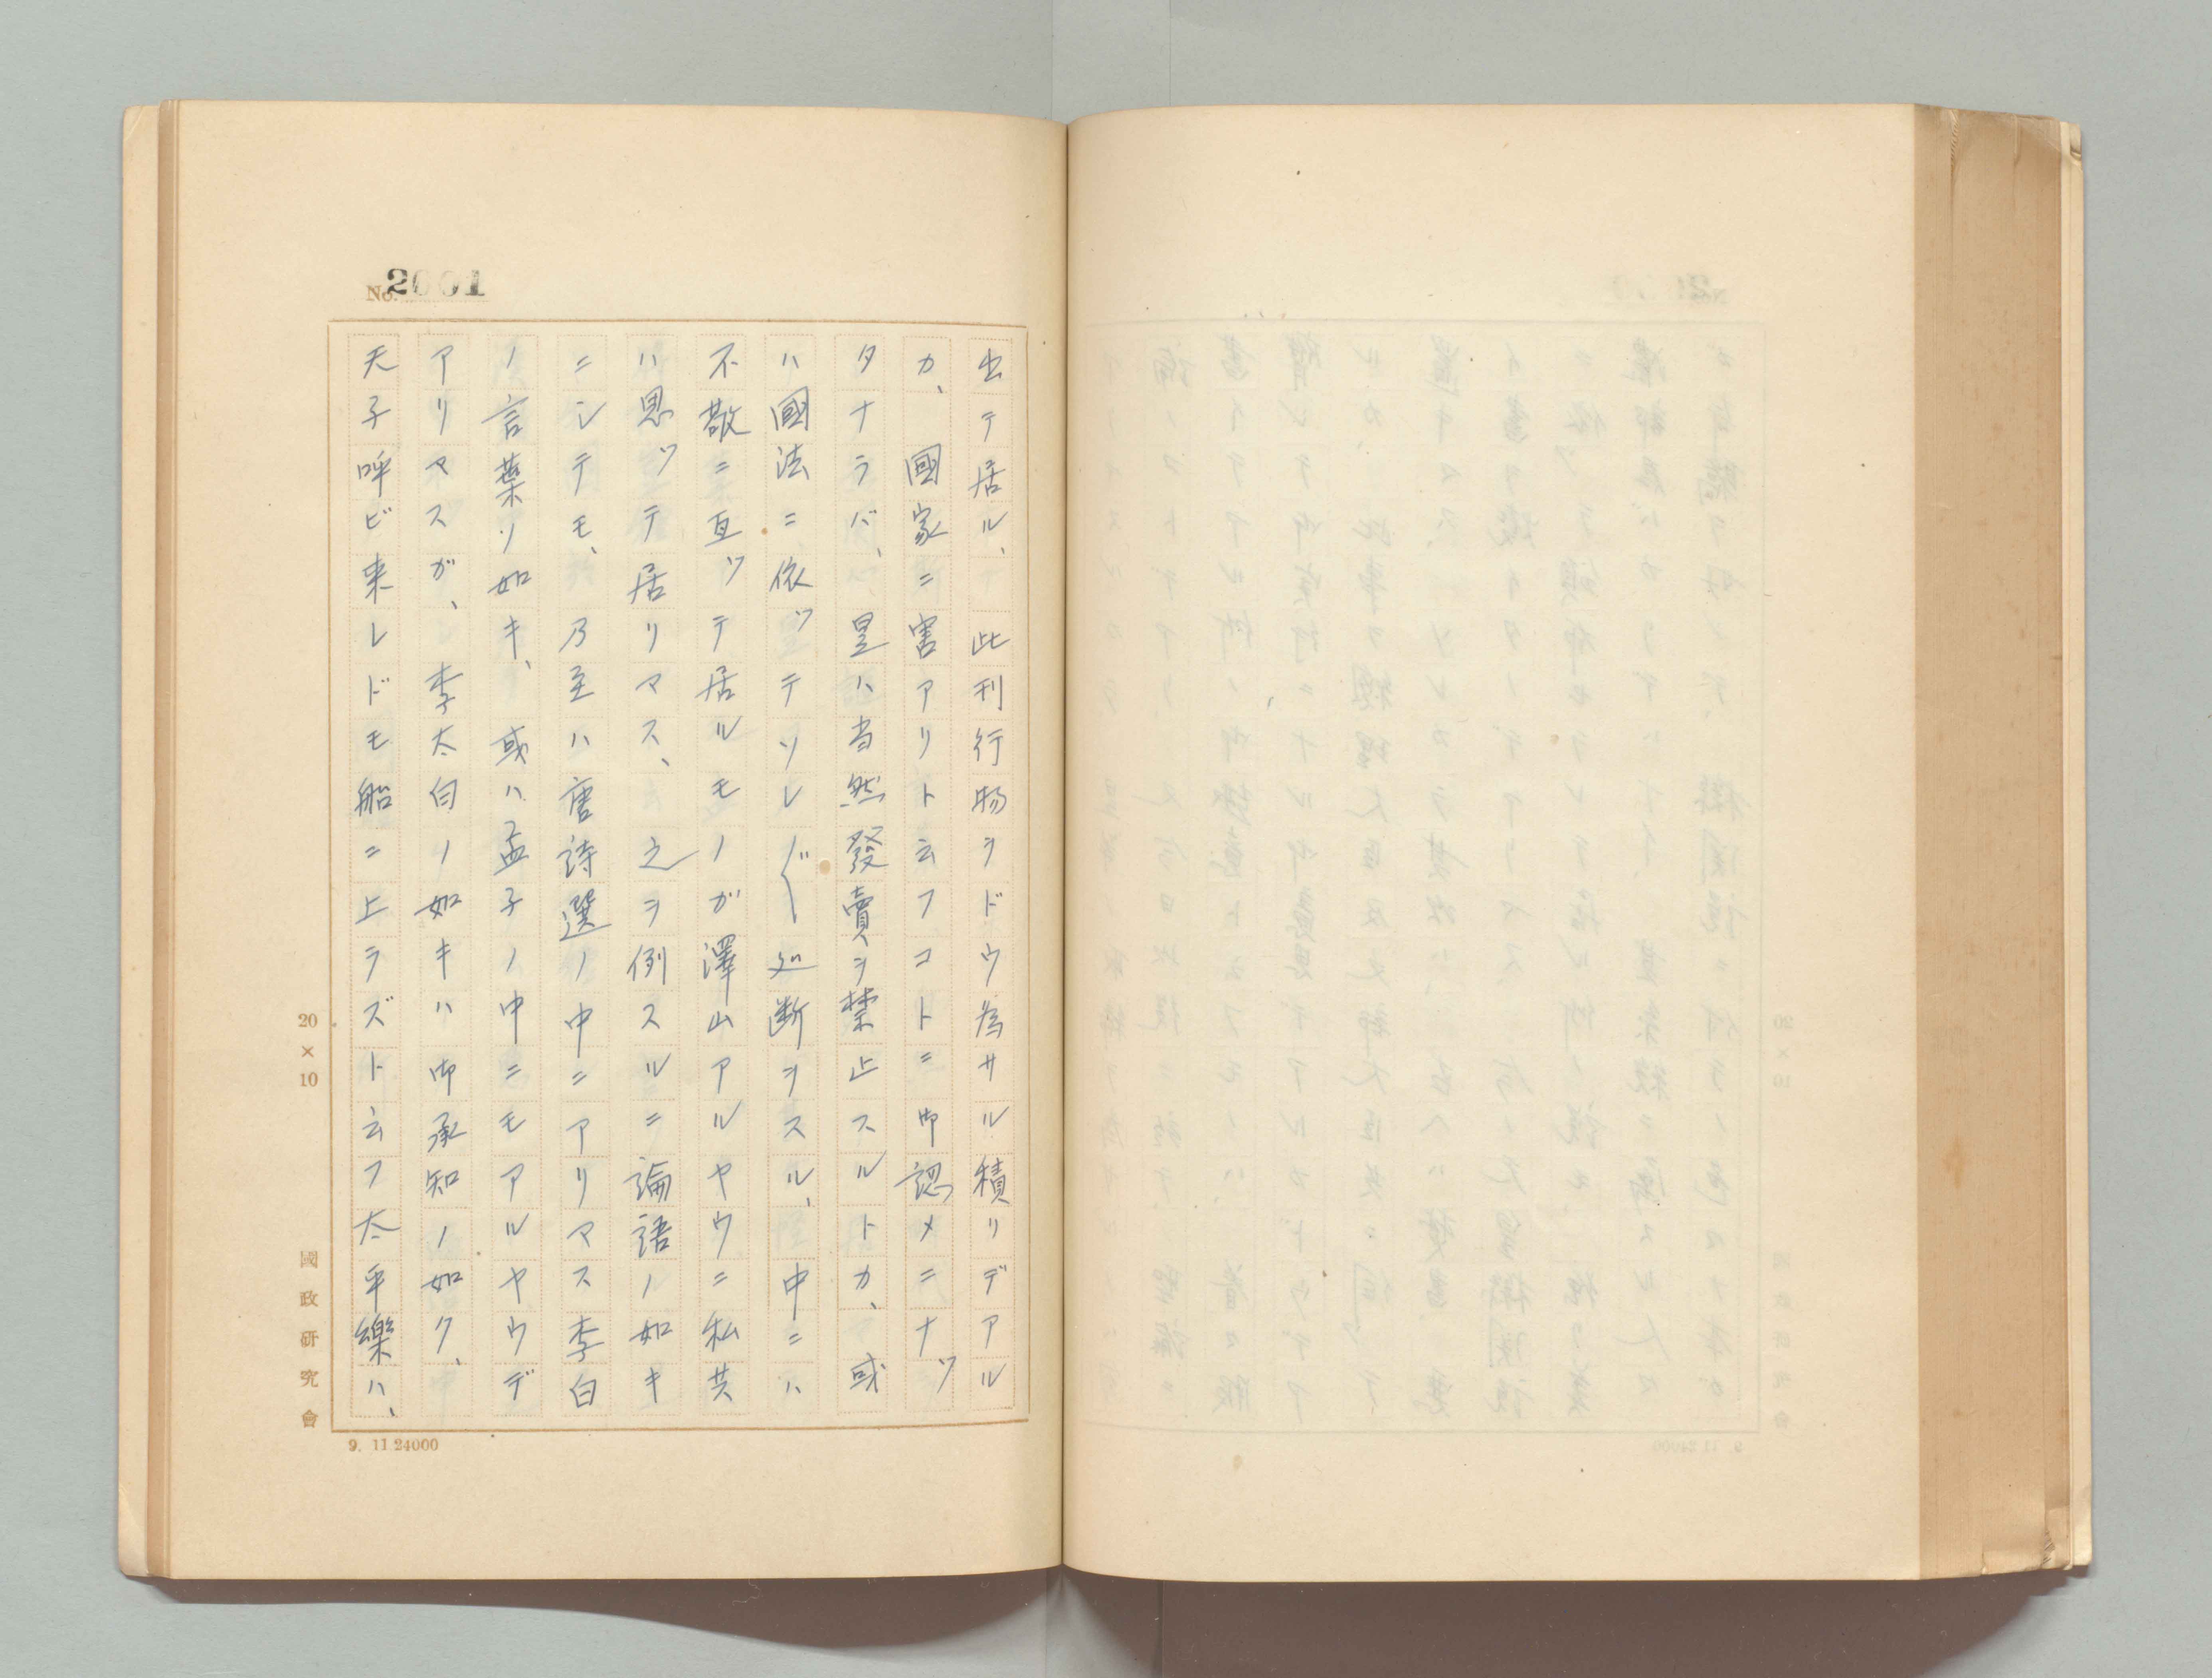 No. 2001
出テ居ル、此刊行物ヲドウ為サル積リデアル
カ、國家ニ害アリト云フコトニ御認メニナッ
タナラバ、是ハ当然發賣ヲ禁止スルトカ、或
ハ國法ニ依ッテソレ／″＼処断ヲスル、中ニハ
不敬ニ亙ッテ居ルモノガ澤山アルヤウニ私共
ハ思ッテ居リマス、之ヲ例スルニ論語ノ如キ
ニシテモ、乃至ハ唐詩選ノ中ニアリマス李白
ノ言葉ノ如キ、或ハ孟子ノ中ニモアルヤウデ
アリマスガ、李太白ノ如キハ御承知ノ如ク、
天子呼ビ来レドモ船ニ上ラズト云フ太平樂ハ、
20×10
國政研究會
9. 11 24000